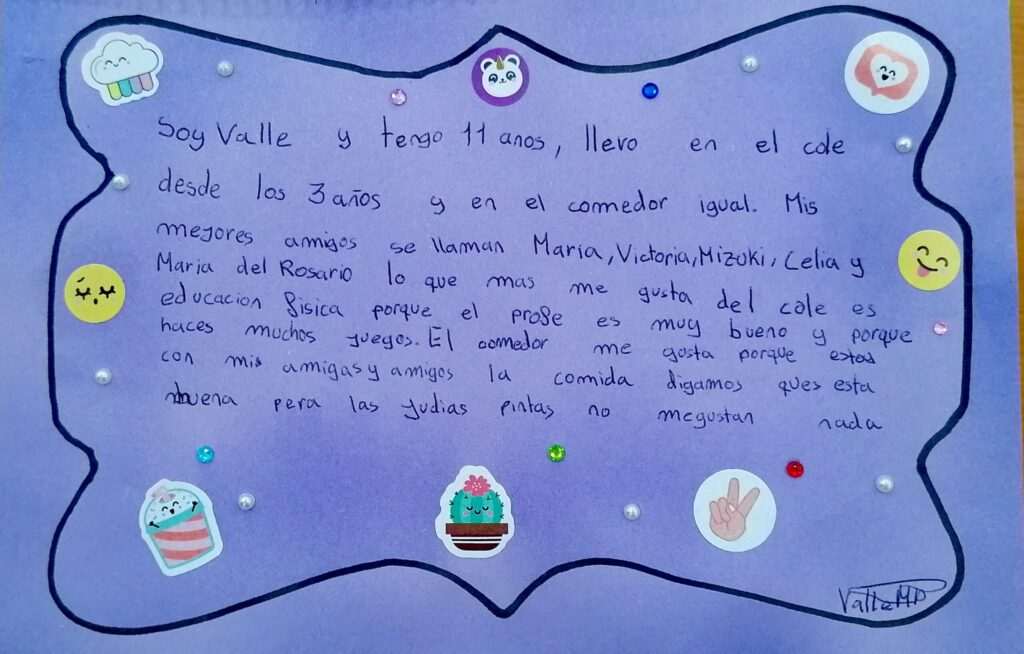 Soy Valle y tengo 11 anos, llevo en el cole
desde los 3 años y en el comedor igual. Mis
mejores amigos se llaman María, Victoria, Mizuki, Celia y
Maria del Rosario lo que mas me gusta del cole es
educacion fisica porque el profe es muy bueno y porque
haces muchos juegos. El comedor me gosta porque estas
con mis amigas y amigos la comida digamos ques esta
buena pera las judias pintas no megustan nada
Valle MP